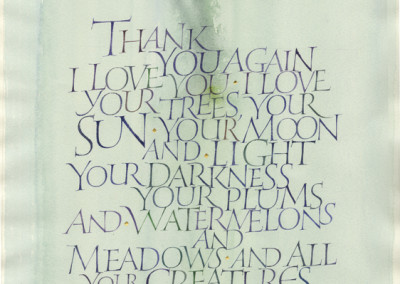 THANK
YOU AGAIN
I LOVE YOU · I LOVE
YOUR TREES, YOUR
SUN · YOUR MOON
AND · LIGHT
YOUR DARKNESS
YOUR PLUMS
AND · WATERMELONS
AND
MEADOWS · AND ALL
YOUR CREATURES